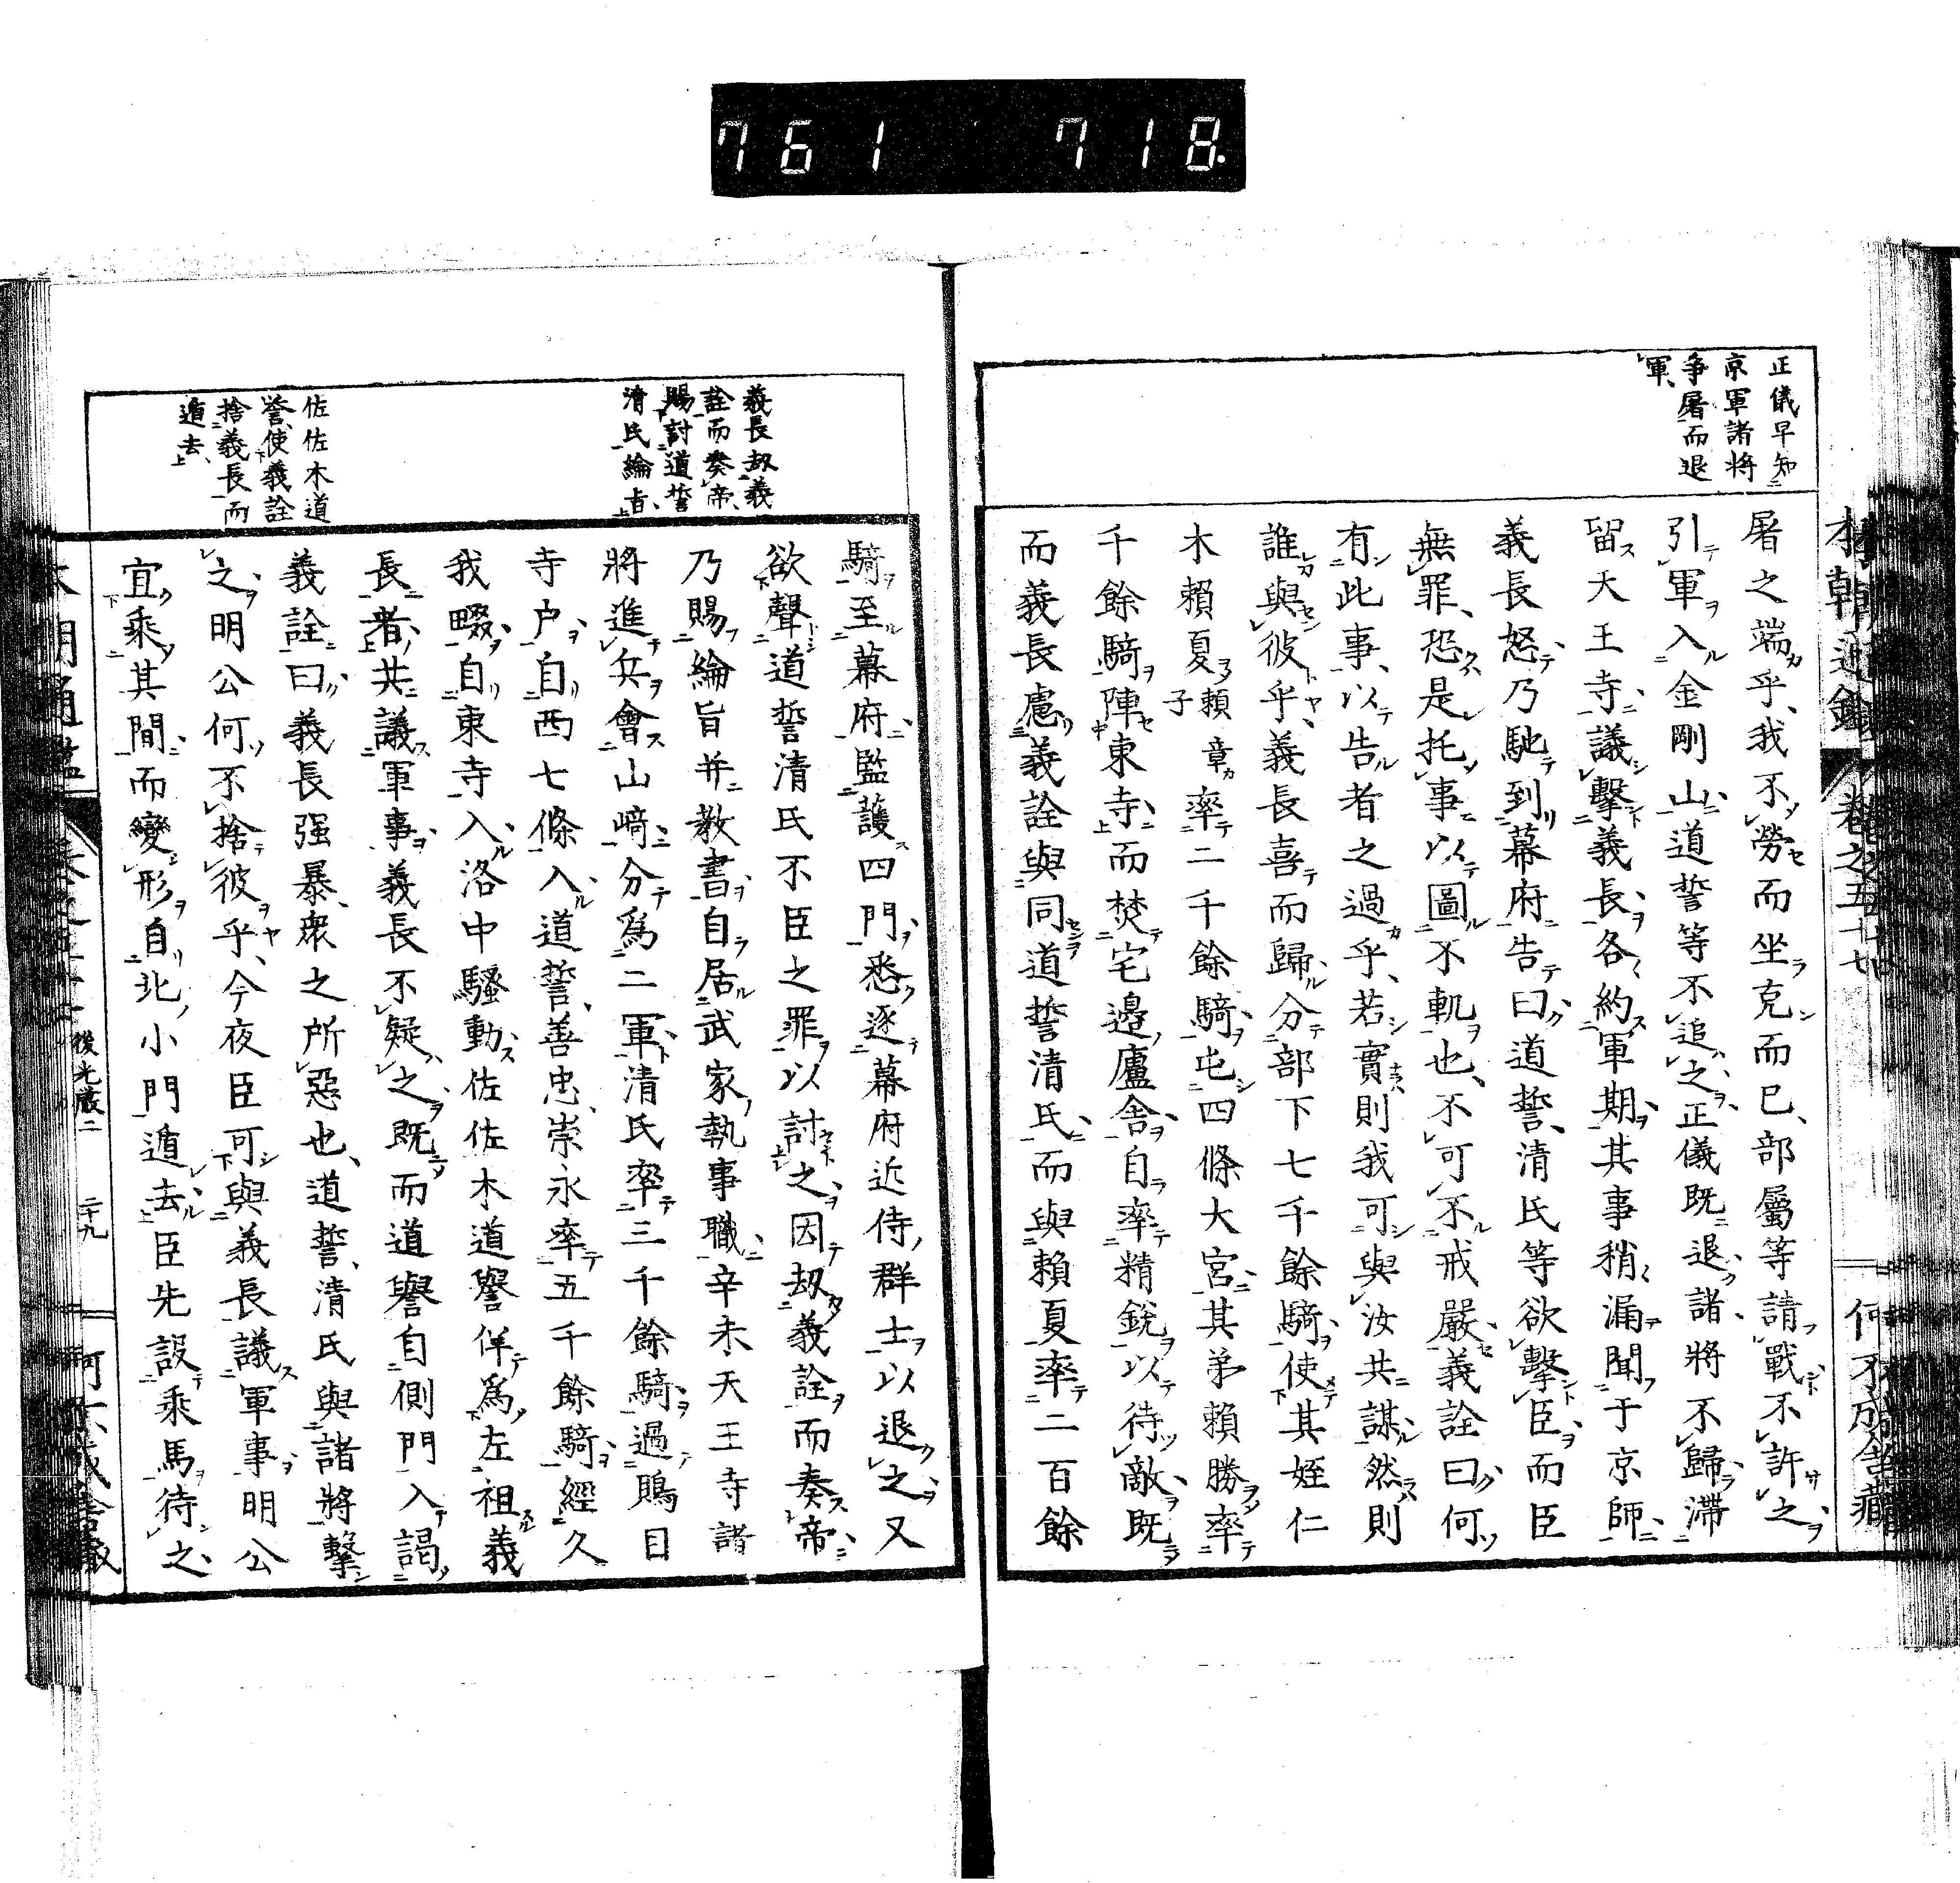 761 718.
正儀早知
京軍諸將
爭屠而退
軍、
屠之端乎、我不勞而坐克而已、部屬等請戰不許之
引軍入金剛山、道誓等不追之、正儀既退、諸將不歸滯
留天王寺、議擊義長、各約軍期、其事稍漏聞于京師、
義長怒、乃馳到幕府告曰、道誓、清氏等欲擊臣、而臣
無罪、恐是托事以圖不軌也、不可不戒嚴、義詮曰、何
有此事、以告者之過乎、若實則我可與汝共謀、然則
誰與彼乎、義長喜而歸、分部下七千餘騎、使其姪仁
木賴夏賴章子率二千餘騎屯四條大宮、其弟賴勝率
千餘騎陣東寺、而焚宅邊廬舍、自率精銳以待敵、既
而義長慮義詮與同道誓清氏、而與賴夏率二百餘
卷之五十七
義長劫義
詮而奏帝、
賜討道誓
清氏綸旨、
佐佐木道
譽、使義詮
捨義長而
遁去、
騎至幕府監護四門、悉逐幕府近侍群士以退之、又
欲聲道誓清氏不臣之罪以討之、因劫義詮而奏帝、
乃賜綸旨并教書、自居武家執事職、辛未天王寺諸
將進兵會山崎、分爲二軍、清氏率三千餘騎、過鵙目
寺戶、自西七條入、道誓、善忠、崇永率五千餘騎、經久
我畷、自東寺入、洛中騷動、佐佐木道譽佯爲左袒義
長者、共議軍事、義長不疑之、既而道譽自側門入謁
義詮曰、義長强暴、衆之所惡也、道誓、清氏與諸將擊
之、明公何不捨彼乎、今夜臣可與義長議軍事、明公
宜乘其間而變形、自北小門遁去、臣先設乘馬待之、
後光嚴二
二十九